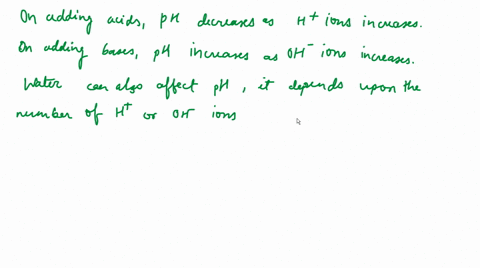 On adding acids, pH decreases as H⁺ ions increases.
On adding bases, pH increases as OH⁻ ions increases.
Water can also affect pH, it depends upon the
number of H⁺ or OH⁻ ions